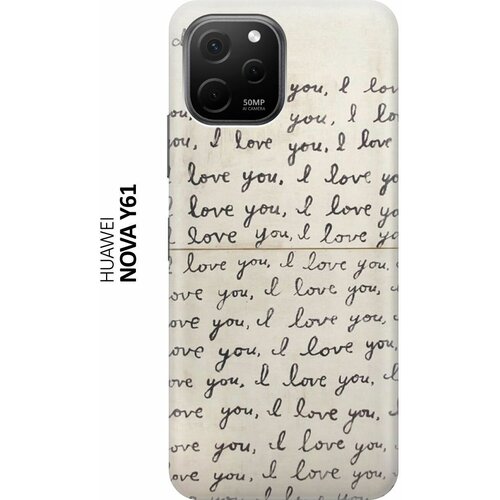 HUAWEI
NOVA Y61
50MP
AI CAMERA
you, I lov
ou, you, I lo
ou, I love you, I love
love you, I love yo
love you, I love yo
I love you, I love yo
I love you, I love you,
ove you, I love you,
ove you, I love you,
ove you, I love you,
ove you, I love you,
ove you, I love you,
ove you, I love you,
ove you, I love you,
love you, I love you,